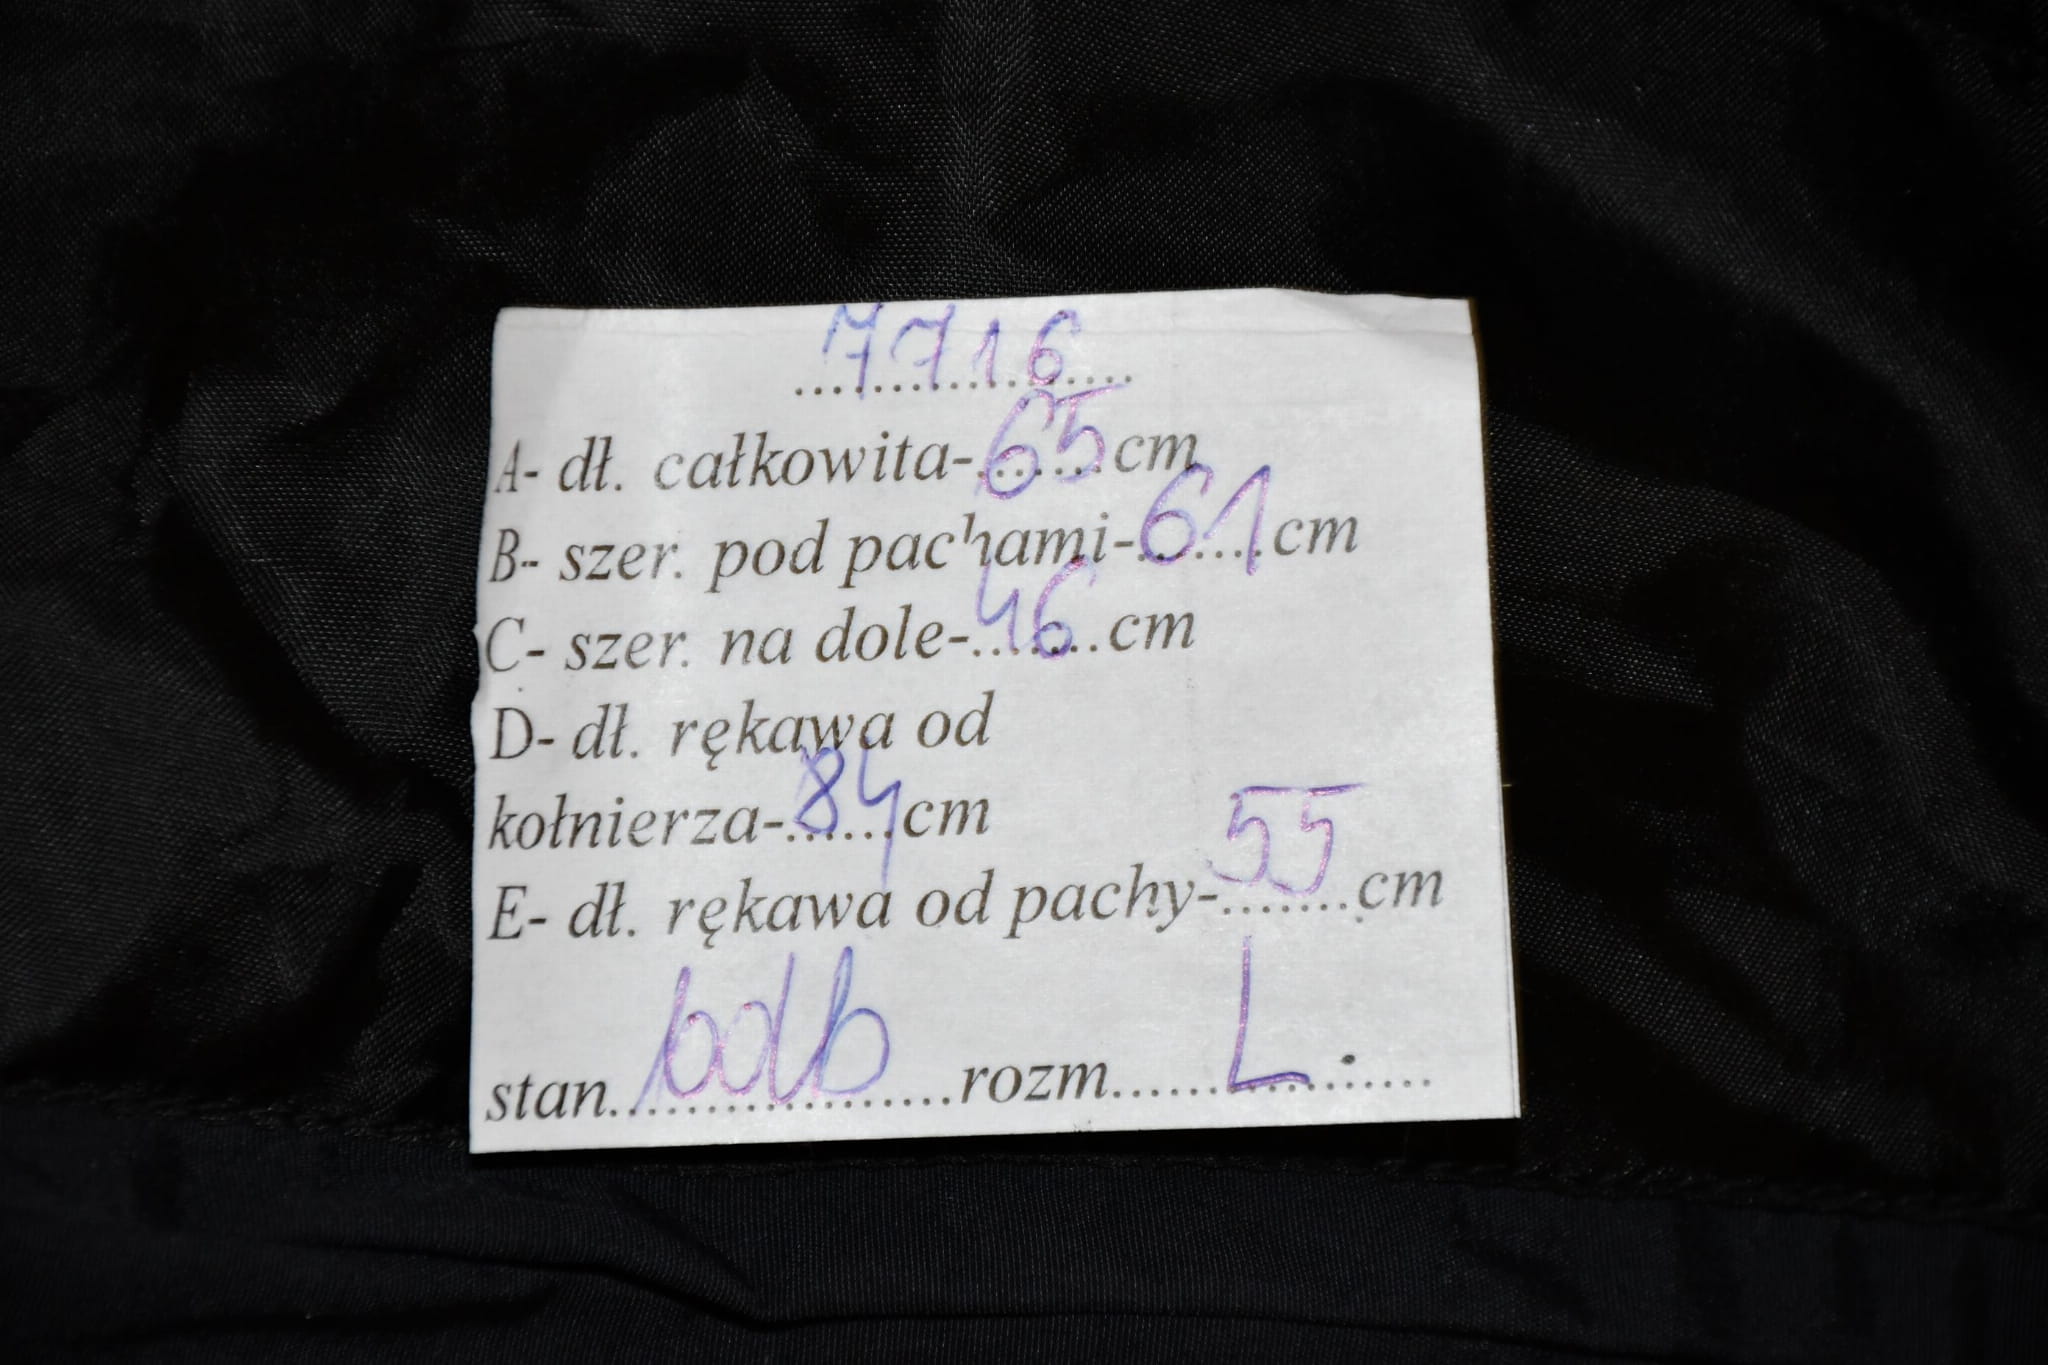 7716
A- dł. całkowita-65cm
B- szer. pod pachami-61cm
C- szer. na dole-46cm
D- dł. rękawa od
kołnierza-84cm
E- dł. rękawa od pachy-55cm
stan bdb rozm L